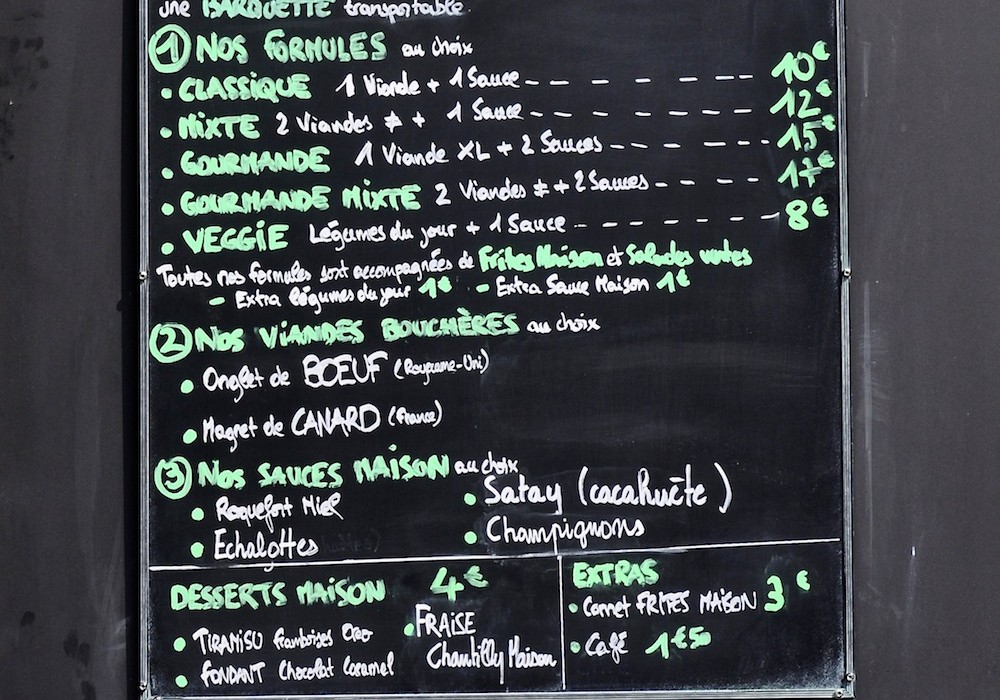 une BARQUETTE transportable.
① NOS FORMULES au choix
• CLASSIQUE 1 Viande + 1 Sauce - - - - - - - 10€
• MIXTE 2 Viandes ≠ + 1 Sauce - - - - - - - 12€
• GOURMANDE 1 Viande XL + 2 Sauces - - - - - - - 15€
• GOURMANDE MIXTE 2 Viandes ≠ + 2 Sauces - - - - - 17€
• VEGGIE Légumes du jour + 1 Sauce - - - - - - - 8€
Toutes nos formules sont accompagnées de Frites Maison et Salades vertes
- Extra légumes du jour 1€ - Extra Sauce Maison 1€
② NOS VIANDES BOUCHÈRES au choix
• Onglet de BOEUF (Royaume-Uni)
• Magret de CANARD (France)
③ NOS SAUCES MAISON au choix
• Roquefort Miel
• Echalottes
• Satay (cacahuète)
• Champignons
DESSERTS MAISON 4€
• TIRAMISU framboises Oreo
• FONDANT Chocolat Caramel
• FRAISE
Chantilly Maison
EXTRAS
• Cornet FRITES MAISON 3€
• Café 1€50